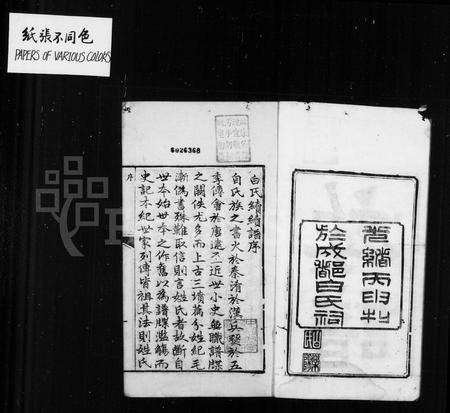 紙張不同色
PAPERS OF VARIOUS COLORS
6026368
白氏續譜序
自氏族之書火於秦淆於漢兵燹於五
季傳會於唐遠不近世小史無職譜牒
之闕佚尤多而上古三墳萬分姓紀毛
漸偽書殊難取信則言姓氏者故斷自
世本始世本之作舊以為譜牒濫觴而
史記本紀世家列傳皆祖其法則姓氏
序
光緒丙申刊
於成都白氏祠